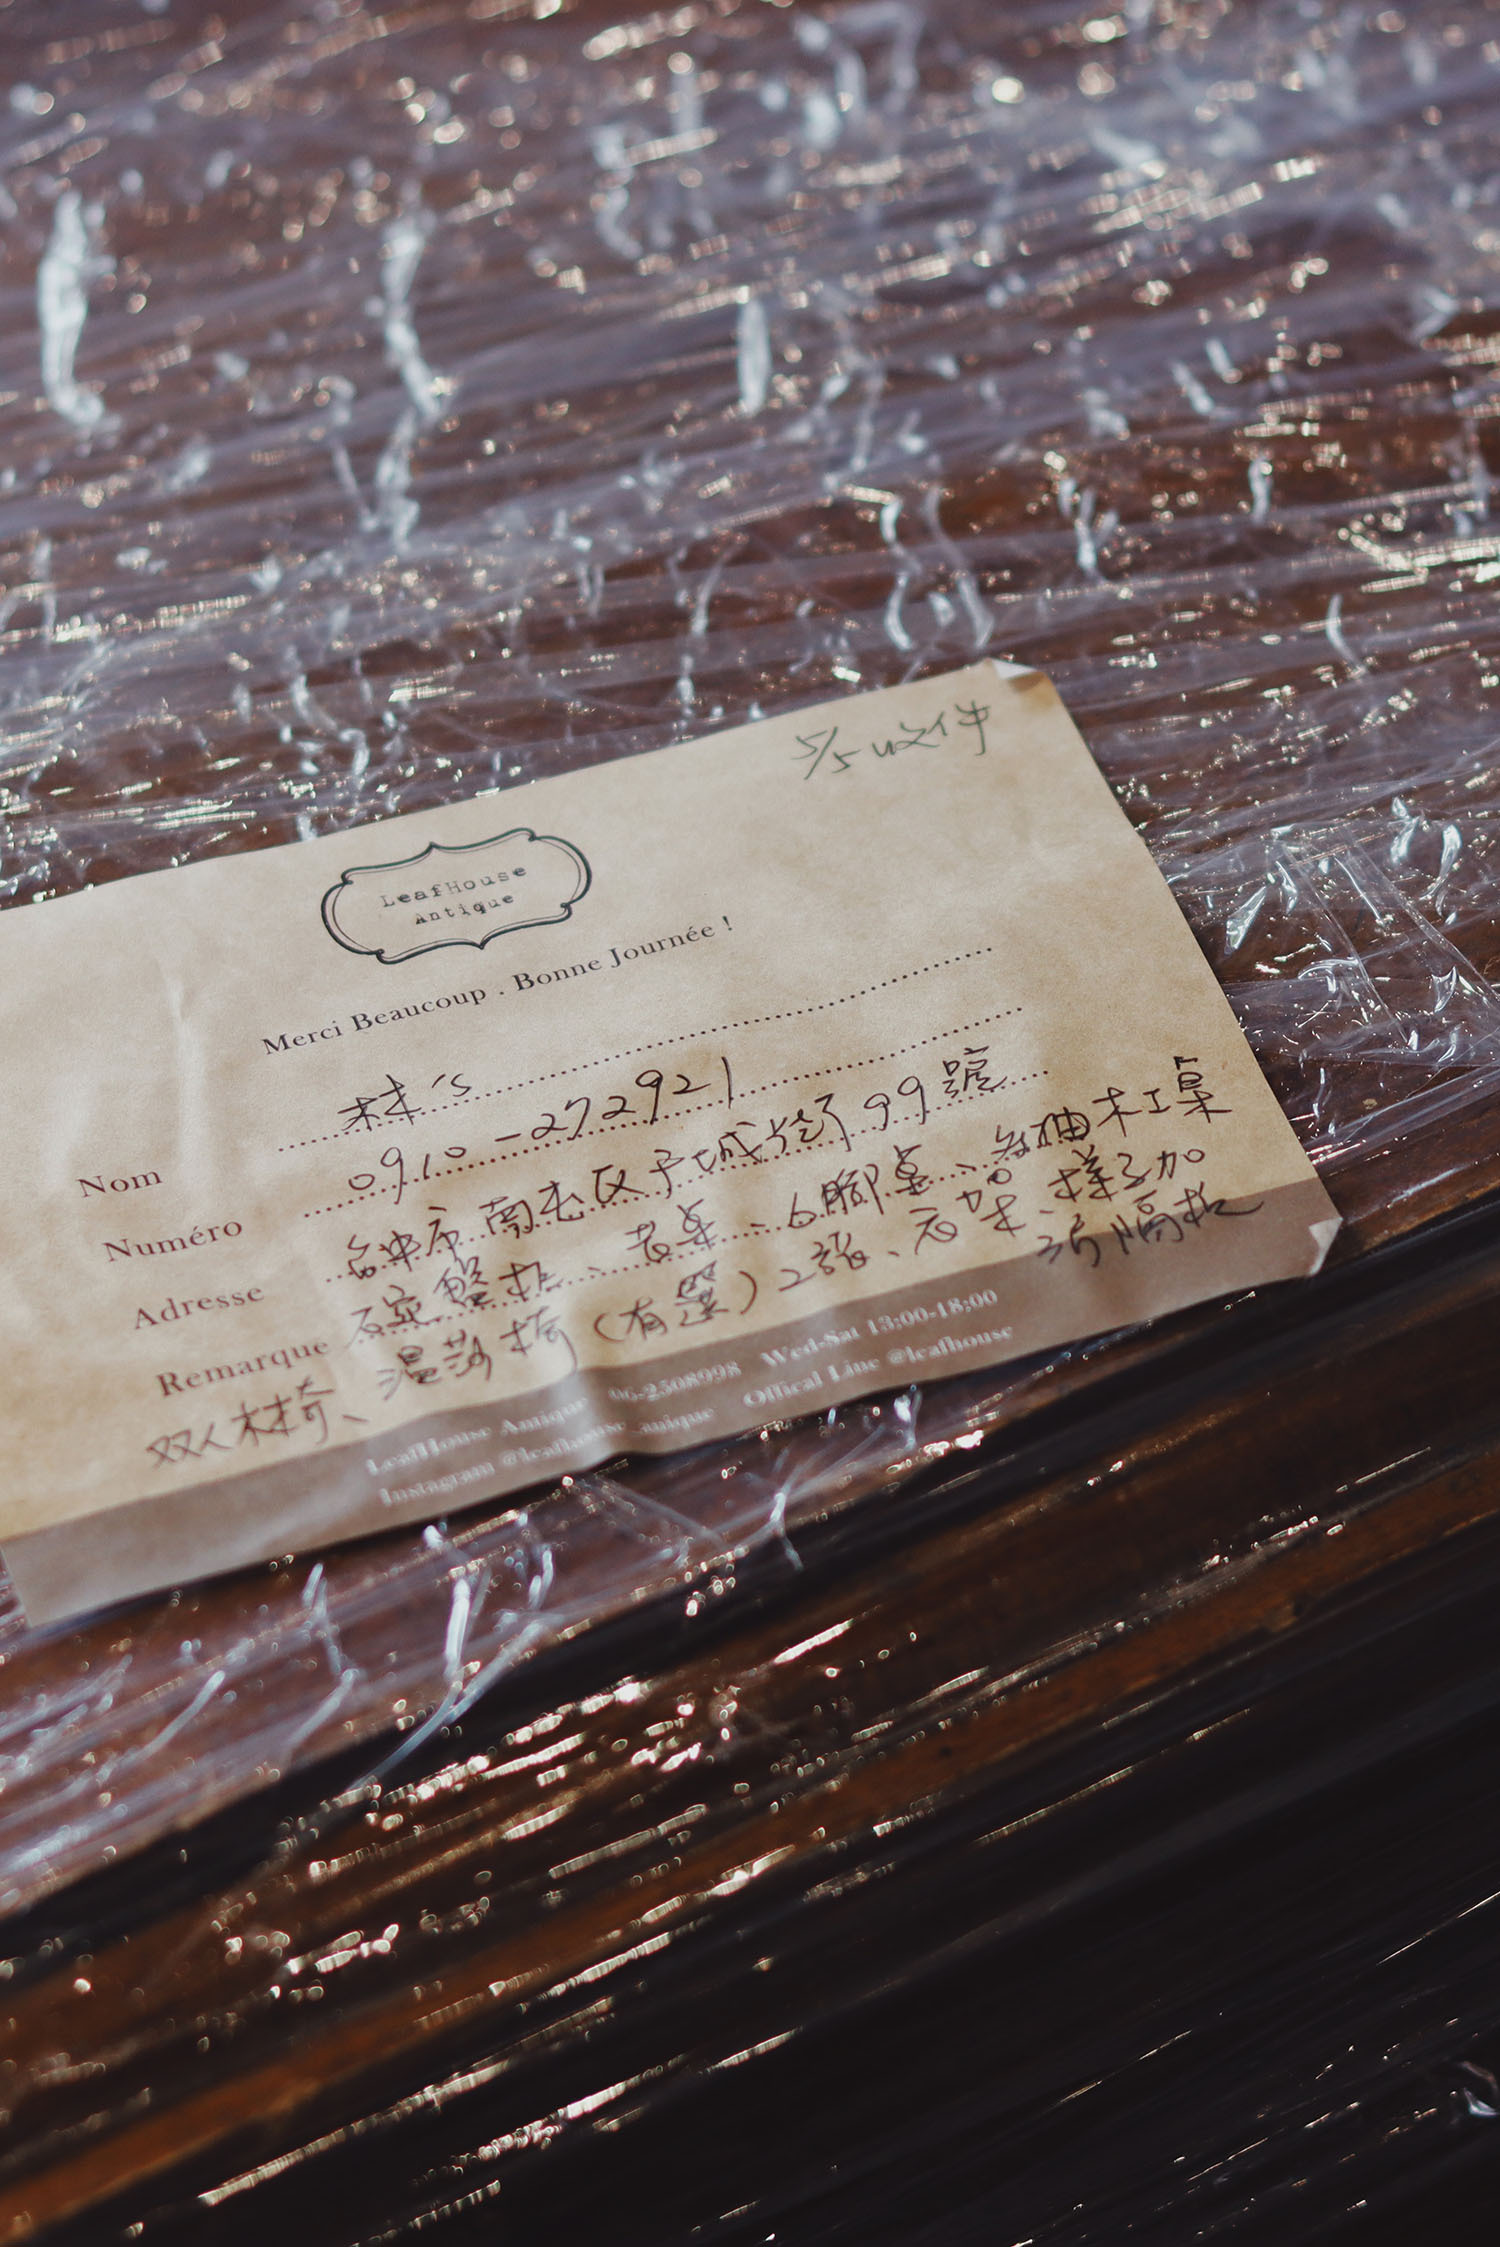 5/5 收件
LeafHouse
Antique
Merci Beaucoup . Bonne Journée !
Nom 林's
Numéro 0910-272921
Adresse 台中市南屯區子城街99號
Remarque 碗盤板、老桌、6腳桌、抽木工桌
双人林椅、溫莎椅(有選)2張、衣架、樣子加
活隔板
LeafHouse Antique 06-2508998 Wed-Sat 13:00-18:00
Instagram @leafhouse_anique Offical Line @leafhouse